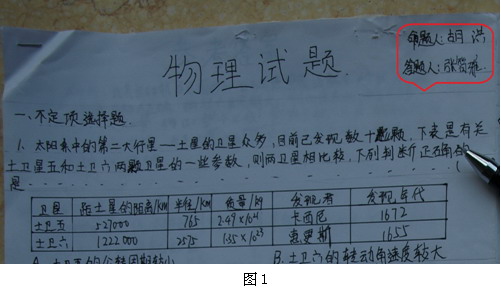 命题人:胡洪
答题人:张
物理试题.
一、不定项选择题.
1. 太阳系中的第二大行星—土星的卫星众多,目前已发现数十颗. 下表是有关
土卫星五和土卫六两颗卫星的一些参数,则两卫星相比较,下列判断正确的
是
卫星 距土星的距离/KM 半径/KM 质量/Kg 发现者 发现年代
土卫五 527000 765 2.49×10²¹ 卡西尼 1672
土卫六 1222000 2575 1.35×10²³ 惠更斯 1655
A. 土卫五的公转周期较小 B. 土卫六的转动角速度较大
图1